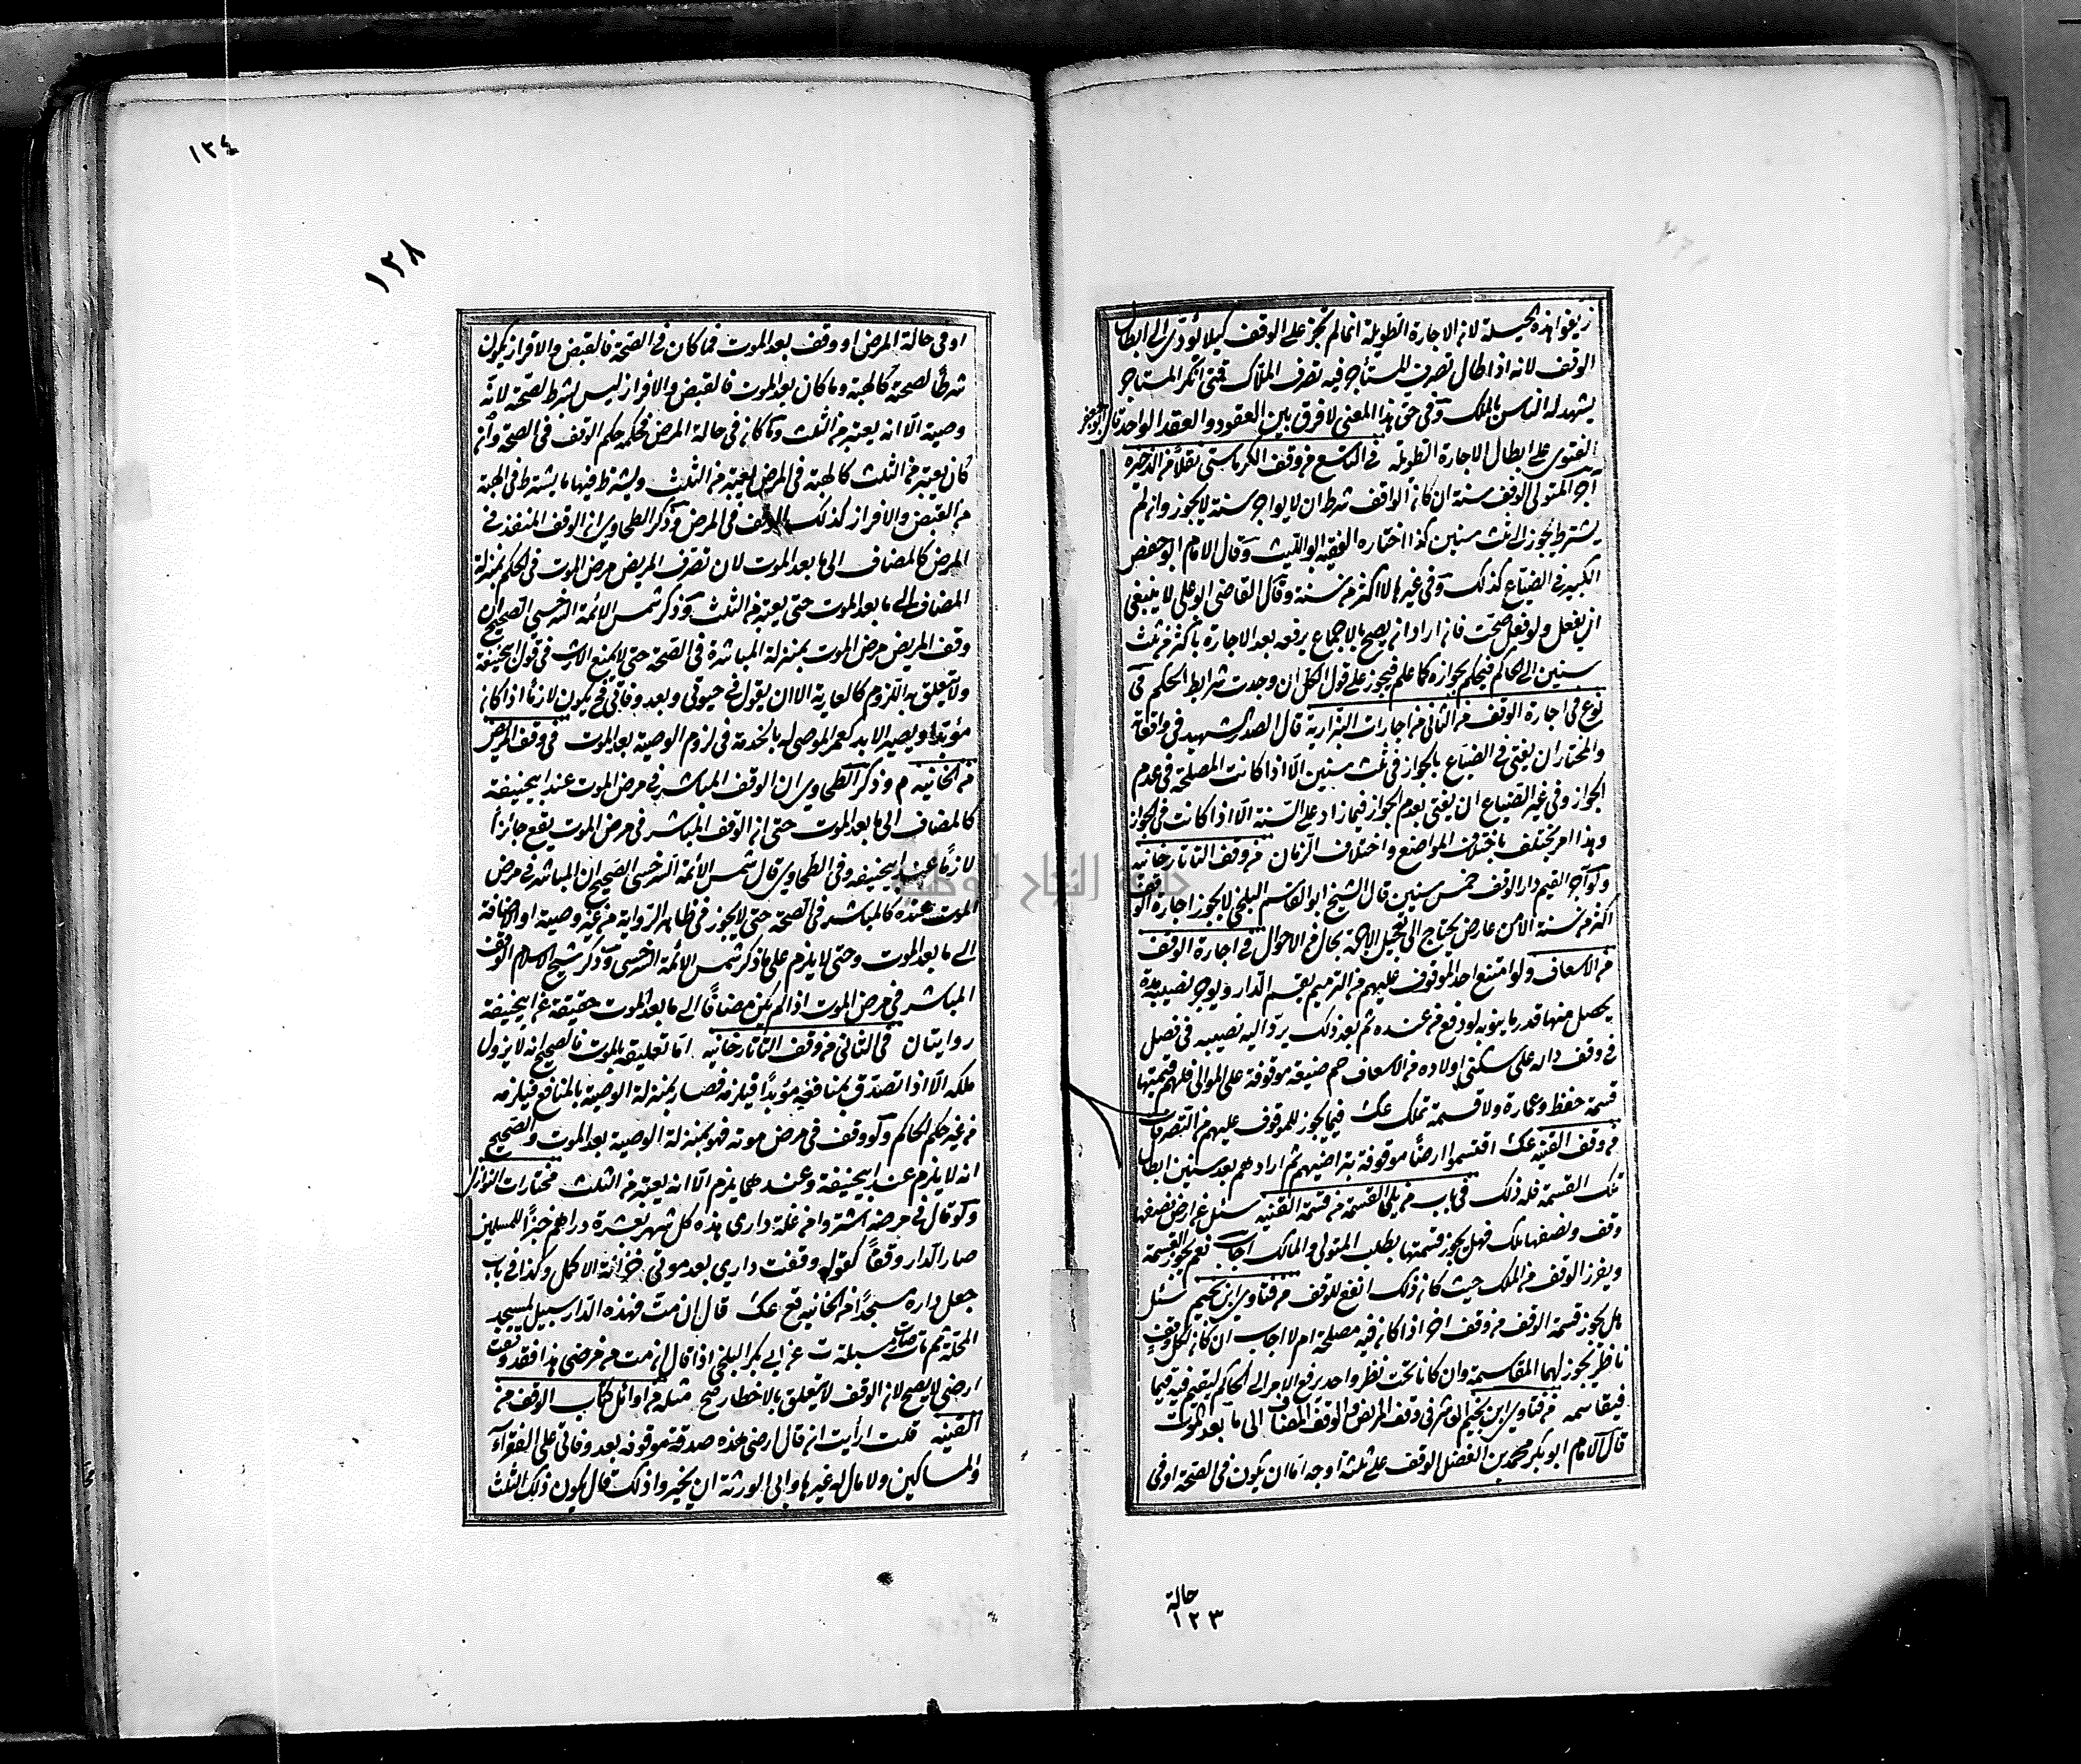 زيفوا هذه الحيلة لان الاجارة الطويلة انما لم تجز على الوقف كيلا تؤدى الى ابطال
الوقف لانه اذا طال تصرف المستأجر فيه تصرف الملاك فمتى انكر المستاجر
يشهد له الناس بالملك وفى حق هذا المعنى لا فرق بين العقود والعقد الواحد قال ابو جعفر
الفتوى على ابطال الاجارة الطويلة فى التاسع من وقف الكرماستى نقلا من الذخيره
آجر المتولى الوقف سنة ان كان الواقف شرط ان لا يواجر سنة لا يجوز وان لم
يشترط يجوز الى ثلث سنين كذا اختاره الفقيه ابو الليث وقال الامام ابو حفص
الكبير فى الضياع كذلك وفى غيرها لا اكثر من سنة وقال القاضى ابو على لا ينبغى
ان يفعل ولو فعل صحت فان اراد ان يصح بالاجماع يرفعه بعد الاجارة باكثر من ثلث
سنين الى الحاكم فيحكم بجوازه كما علم فيجوز على قول الكل ان وجدت شرايط الحكم فى
نوع فى اجارة الوقف من الثانى من اجارات البزازية قال الصدر الشهيد فى واقعاته
والمختار ان يفتى فى الضياع بالجواز فى ثلث سنين الا اذا كانت المصلحة فى عدم
الجواز وفى غير الضياع ان يفتى بعدم الجواز فيما زاد على السنة الا اذا كانت فى الجواز
وهذا امر يختلف باختلاف المواضع واختلاف الزمان من وقف التاتارخانيه
ولو آجر القيم دار الوقف خمس سنين قال الشيخ ابو القاسم البلخى لا يجوز اجارة الوقف
اكثر من سنة الا من عارض يحتاج الى تعجيل الاجرة بحال من الاحوال فى اجارة الوقف
من الاسعاف ولو امتنع احد الموقوف عليهم من الترميم يقسم الدار ويوجر نصيبه مدة
يحصل منها قدر ما ينوبه لو دفع من عنده ثم بعد ذلك يرد اليه نصيبه فى فصل
فى وقف داره على سكنى اولاده من الاسعاف ضيعه موقوفة على الموالى فلهم قسمتها
قسمة حفظ وعمارة ولا قسمة تملك عك فيما يجوز للموقوف عليهم من التصرفات
من وقف القنيه عك اقتسموا ارضا موقوفة بتراضيهم ثم اراد احدهم بعد سنين ابطال
تلك القسمة فله ذلك فى باب من يلى القسمة من قسمة القنيه سئل عن ارض نصفها
وقف ونصفها ملك فهل يجوز قسمتها بطلب المتولى والمالك اجاب نعم يجوز القسمة
ويفرز الوقف من الملك حيث كان ذلك انفع للوقف من فتاوى ابن نجيم سئل
هل يجوز قسمة الوقف من وقف اخر اذا كان فيه مصلحة ام لا اجاب ان كان لكل وقف
ناظر يجوز لهما المقاسمة وان كانا تحت نظر واحد يرفع الامر الى الحاكم ليقيم فيه قيما
فيقاسمه من فتاوى ابن نجيم فى وقف المريض والوقف المضاف الى ما بعد الموت
قال الامام ابو بكر محمد بن الفضل الوقف على ثلثة اوجه اما ان يكون فى الصحة او فى
حالة
١٢٣
١٢٤
١٢٨
او فى حالة المرض او وقف بعد الموت فما كان فى الصحة فالقبض والافراز يكون
شرطا لصحته كالهبة وما كان بعد الموت فالقبض والافراز ليس بشرط لصحته لانه
وصية الا انه يعتبر من الثلث وما كان فى حالة المرض فحكمه حكم الوقف فى الصحة وان
كان يعتبر من الثلث كالهبة فى المرض يعتبر من الثلث ويشترط فيها ما يشترط فى الهبة
من القبض والافراز كذلك الوقف فى المرض وذكر الطحاوى ان الوقف المنفذ فى
المرض كالمضاف الى ما بعد الموت لان تصرف المريض مرض الموت فى الحكم بمنزلة
المضاف الى ما بعد الموت حتى يعتبر من الثلث وذكر شمس الائمة السرخسى الصحيح ان
وقف المريض مرض الموت بمنزلة المباشرة فى الصحة حتى لا يمنع الارث فى قول ابيحنيفة
ولا يتعلق به اللزوم كالعارية الا ان يقول فى حيوتى وبعد وفاتى فح يكون لازما اذا كان
مؤبدا ويصير الابد كعمر الموصى له بالخدمة فى لزوم الوصية بعد الموت فى وقف المريض
من الخانيه م وذكر الطحاوى ان الوقف المباشر فى مرض الموت عند ابيحنيفة
كالمضاف الى ما بعد الموت حتى ان الوقف المباشر فى مرض الموت يقع جائزا
لازما عند ابيحنيفه وفى الطحاوى قال شمس الائمة السرخسى الصحيح ان المباشر فى مرض
الموت عنده كالمباشر فى الصحة حتى لا يجوز فى ظاهر الرواية من غير وصية او الاضافة
الى ما بعد الموت وحتى لا يلزم على ما ذكر شمس الائمة السرخسى وذكر شيخ الاسلام الوقف
المباشر فى مرض الموت اذا لم يكن مضافا الى ما بعد الموت حقيقة عن ابيحنيفة
روايتان فى الثانى من وقف التاتارخانيه اما تعليقه بالموت فالصحيح انه لا يزول
ملكه الا اذا تصدق بمنافعه مؤبدا فيلزم فصار بمنزلة الوصية بالمنافع فيلزمه
من غير حكم الحاكم ولو وقف فى مرض موته فهو بمنزلة الوصية بعد الموت والصحيح
انه لا يلزم عند ابيحنيفة وعندهما يلزم الا انه يعتبر من الثلث مختارات النوازل
ولو قال فى مرضه اشتروا من غلة دارى هذه كل شهر بعشرة دراهم خبزا للمسلمين
صار الدار وقفا كقوله وقفت دارى بعد موتى خزانة الاكمل وكذا فى باب
جعل داره مسجدا من الخانيه قع عك قال ان مت فهذه الدار سبيل لمسجد
المحلة ثم مات صارت سبلة ت عن ابى بكر البلخى اذا قال ان مت من مرضى هذا فقد وقفت
ارضى لا يصح لان الوقف لا يتعلق بالاخطار صح مثله من اوائل كتاب الوقف من
القنيه قلت ارأيت ان قال ارضى هذه صدقة موقوفه بعد وفاتى على الفقراء
والمساكين ولا مال له غيرها وابى الورثة ان يجيزوا ذلك قال يكون ذلك الثلث